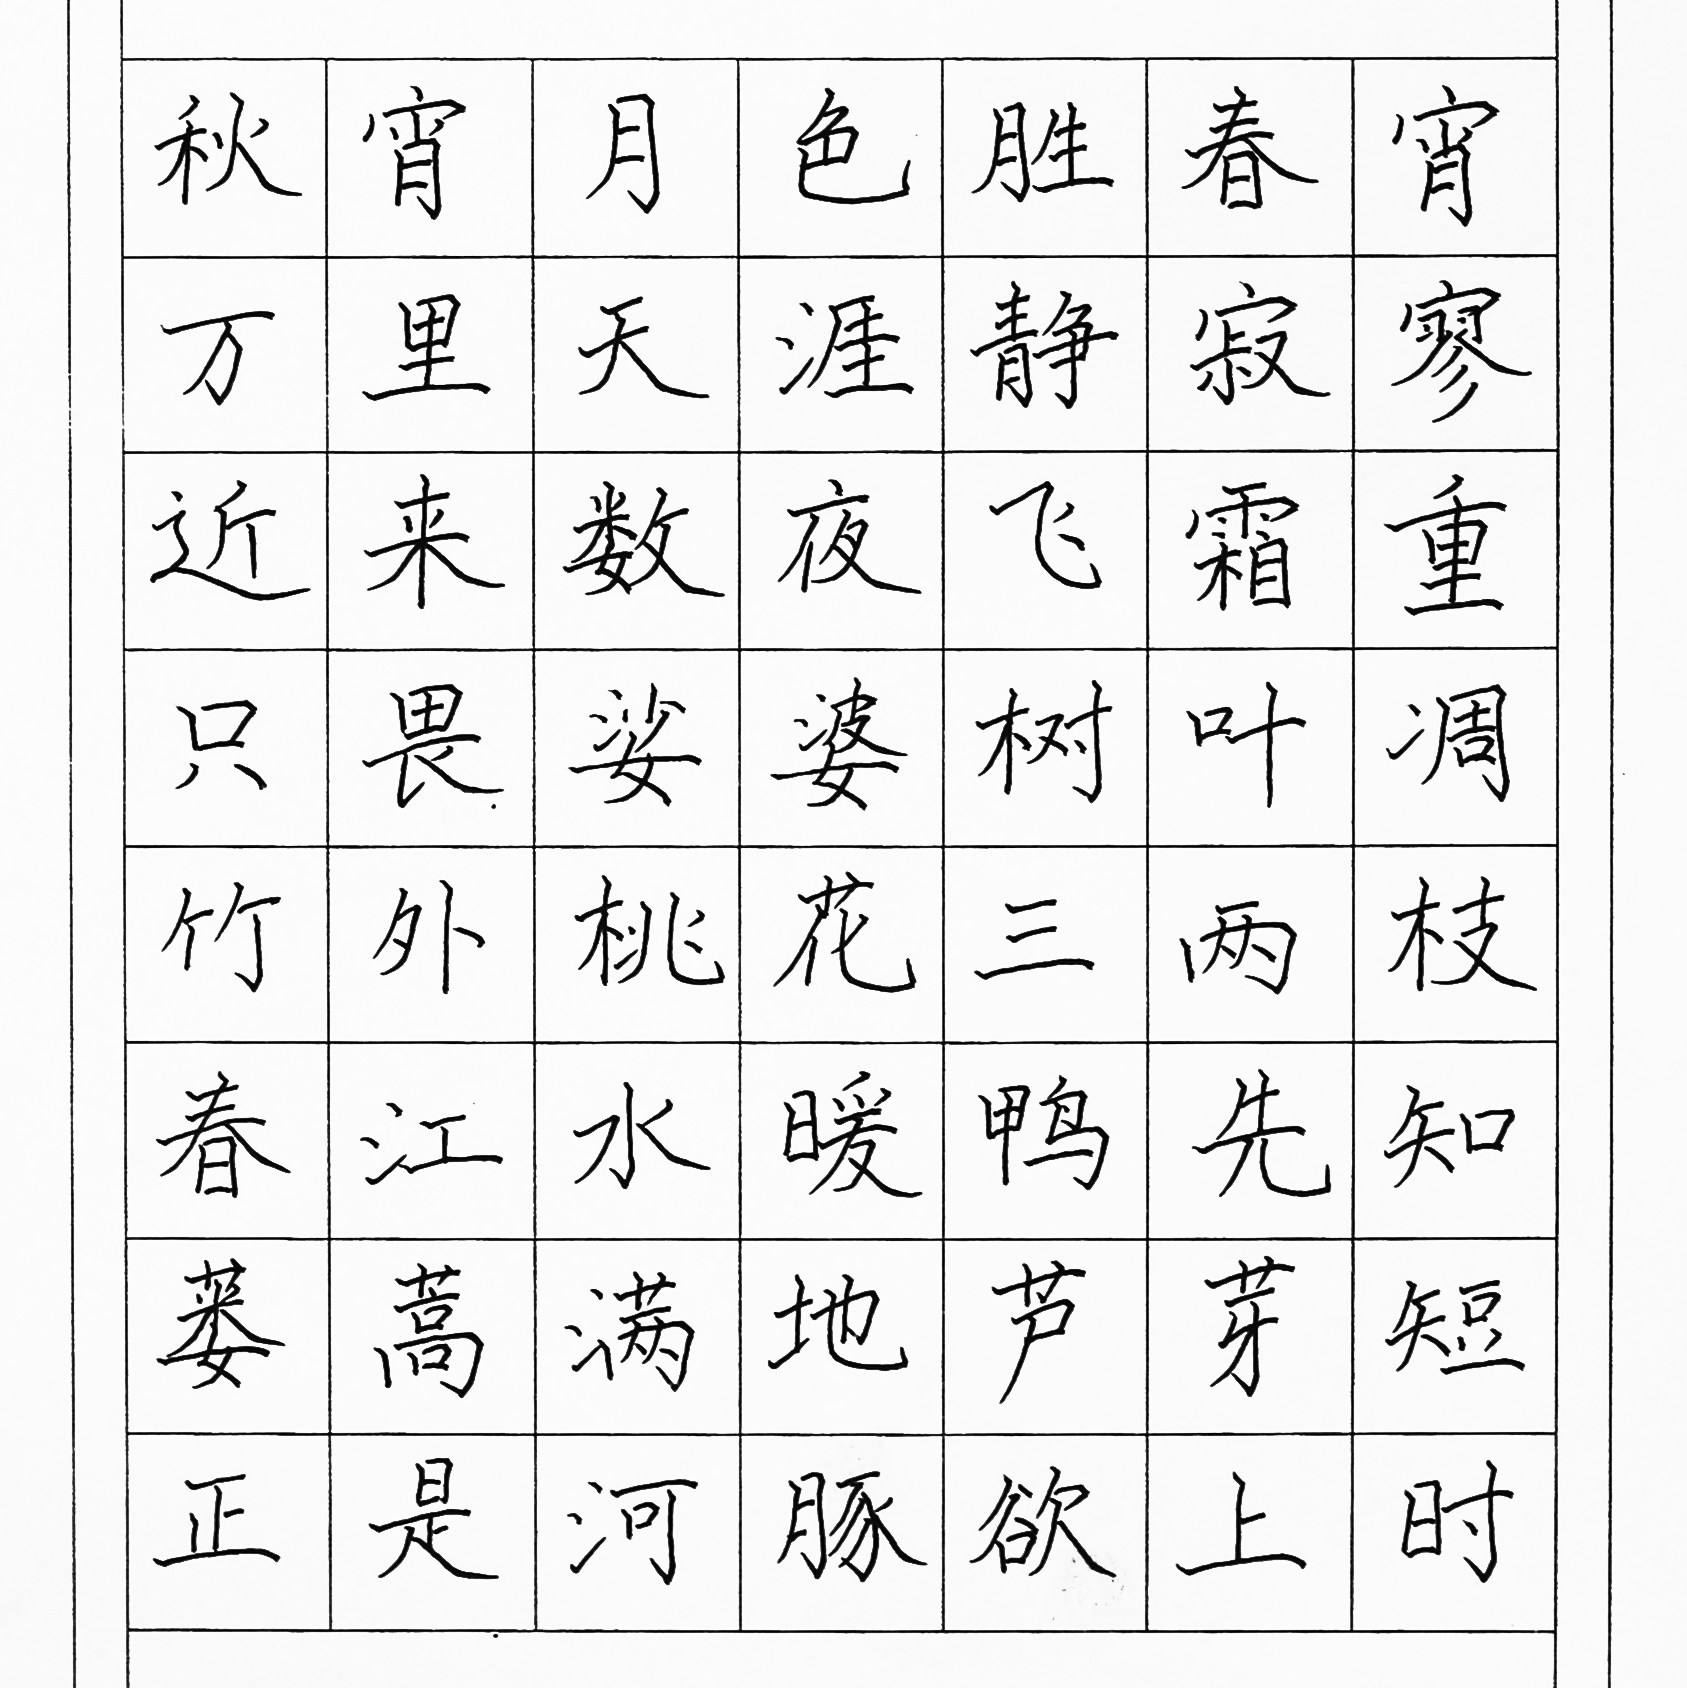 秋宵月色胜春宵
万里天涯静寂寥
近来数夜飞霜重
只畏娑婆树叶凋
竹外桃花三两枝
春江水暖鸭先知
蒌蒿满地芦芽短
正是河豚欲上时